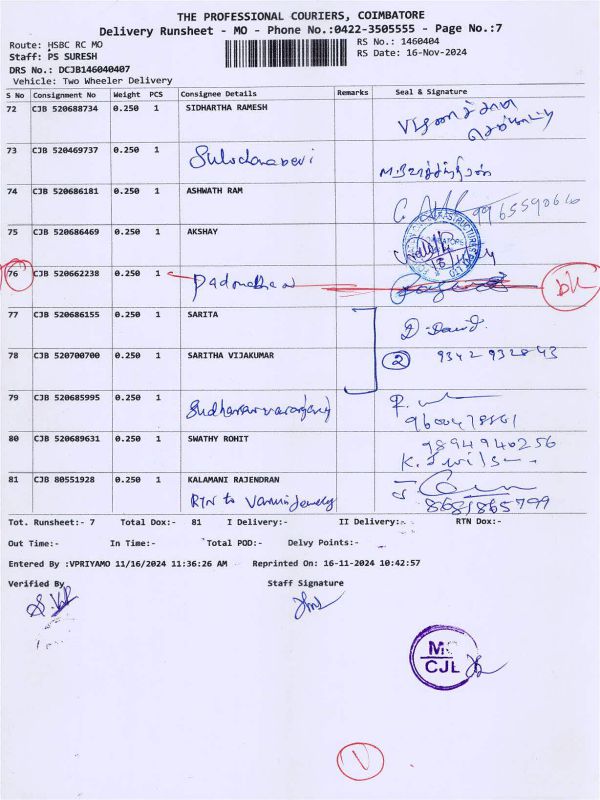 THE PROFESSIONAL COURIERS, COIMBATORE
Delivery Runsheet - MO - Phone No.:0422-3505555 - Page No.:7
Route: HSBC RC MO
RS No.: 1460404
Staff: PS SURESH
RS Date: 16-Nov-2024
DRS No.: DCJB146040407
Vehicle: Two Wheeler Delivery
S No Consignment No Weight PCS Consignee Details Remarks Seal & Signature
72 CJB 520688734 0.250 1 SIDHARTHA RAMESH
73 CJB 520469737 0.250 1 Sulochanadevi
74 CJB 520686181 0.250 1 ASHWATH RAM
9965590666
75 CJB 520686469 0.250 1 AKSHAY
76 CJB 520662238 0.250 1
77 CJB 520686155 0.250 1 SARITA
D. David.
78 CJB 520700700 0.250 1 SARITHA VIJAKUMAR 2 9342932843
79 CJB 520685995 0.250 1
80 CJB 520689631 0.250 1 SWATHY ROHIT 9894940256
81 CJB 80551928 0.250 1 KALAMANI RAJENDRAN
RTN to
8681865799
Tot. Runsheet:- 7 Total Dox:- 81 I Delivery:- II Delivery:- RTN Dox:-
Out Time:- In Time:- Total POD:- Delvy Points:-
Entered By :VPRIYAMO 11/16/2024 11:36:26 AM Reprinted On: 16-11-2024 10:42:57
Verified By Staff Signature
CJL
V